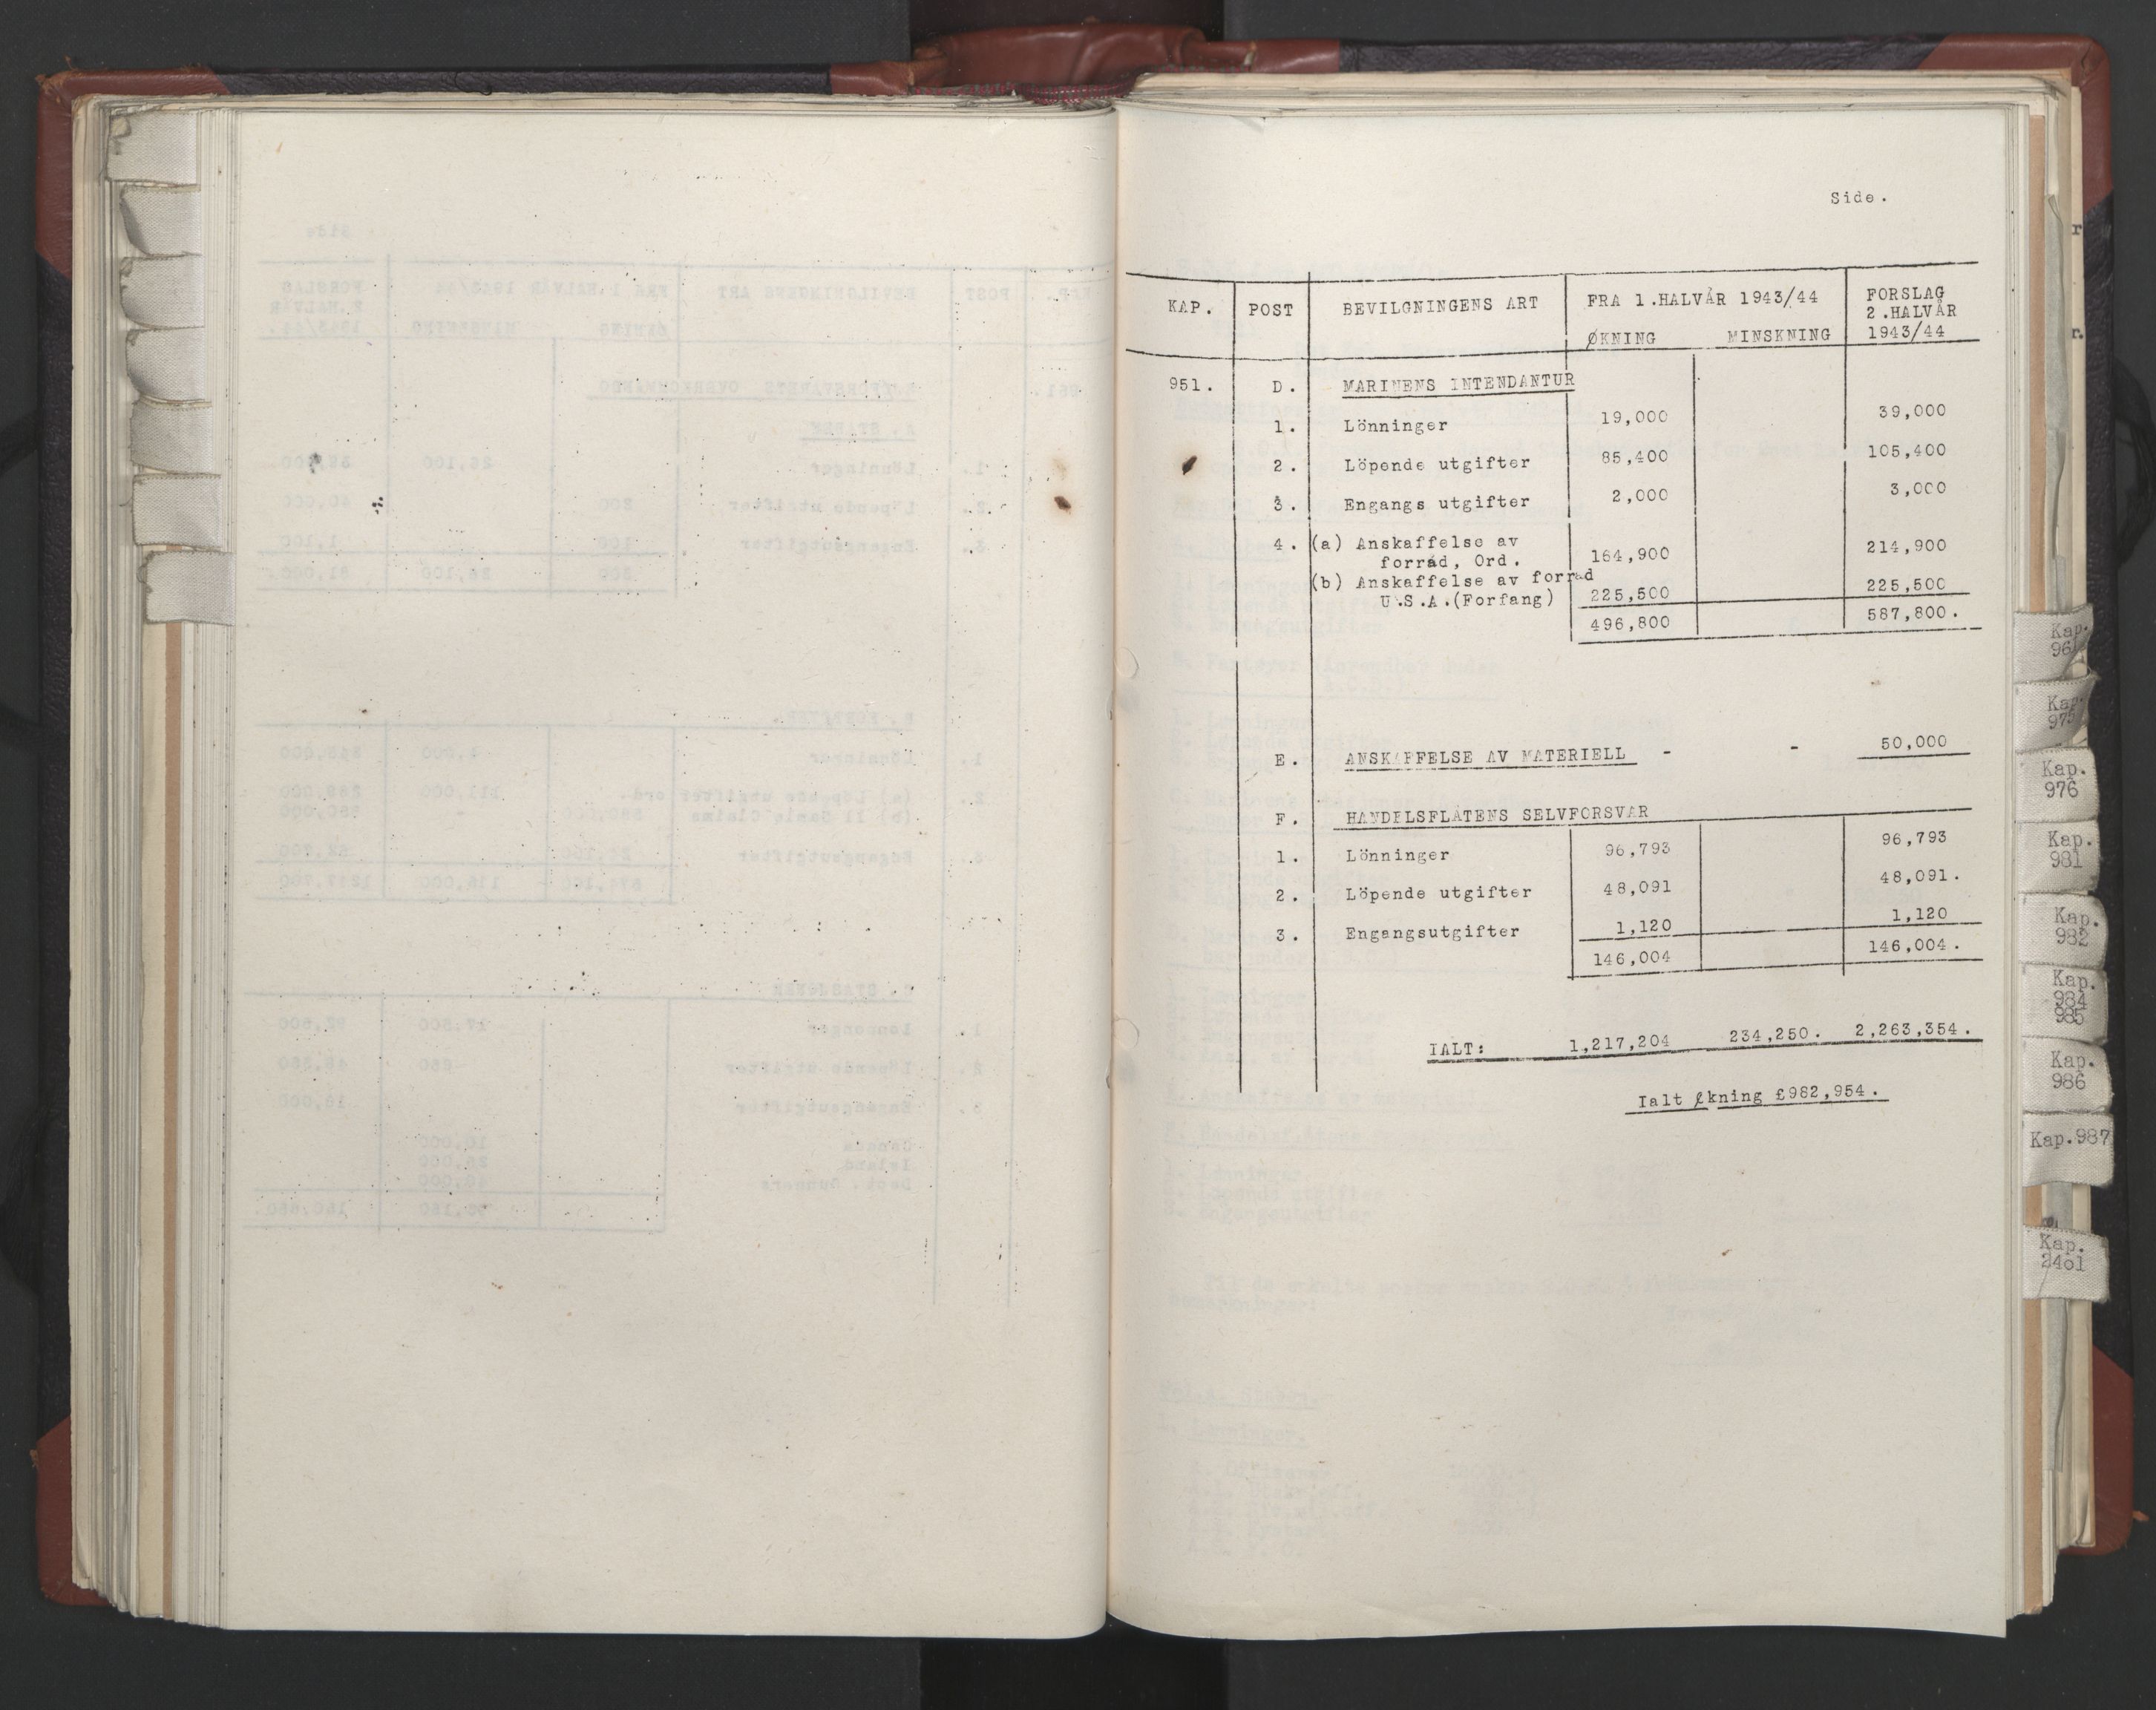 Side.
KAP. POST BEVILGNINGENS ART FRA 1.HALVÅR 1943/44 FORSLAG
2.HALVÅR
ØKNING MINSKNING 1943/44
951. D. MARINENS INTENDANTUR
1. Lönninger 19,000 39,000
2. Löpende utgifter 85,400 105,400
3. Engangs utgifter 2,000 3,000
4. (a) Anskaffelse av
forråd, Ord. 164,900 214,900
(b) Anskaffelse av forråd
U.S.A.(Forfang) 225,500 225,500
496,800 587,800.
E. ANSKAFFELSE AV MATERIELL - - 50,000
F. HANDELSFLÅTENS SELVFORSVAR
1. Lönninger 96,793 96,793
2. Löpende utgifter 48,091 48,091.
3. Engangsutgifter 1,120 1,120
146,004 146,004.
IALT: 1,217,204 234,250. 2,263,354.
Ialt økning £982,954.
Kap.
961
Kap.
975
Kap.
976
Kap.
981
Kap.
982
Kap.
984
985
Kap.
986
Kap.987
Kap.
24o1